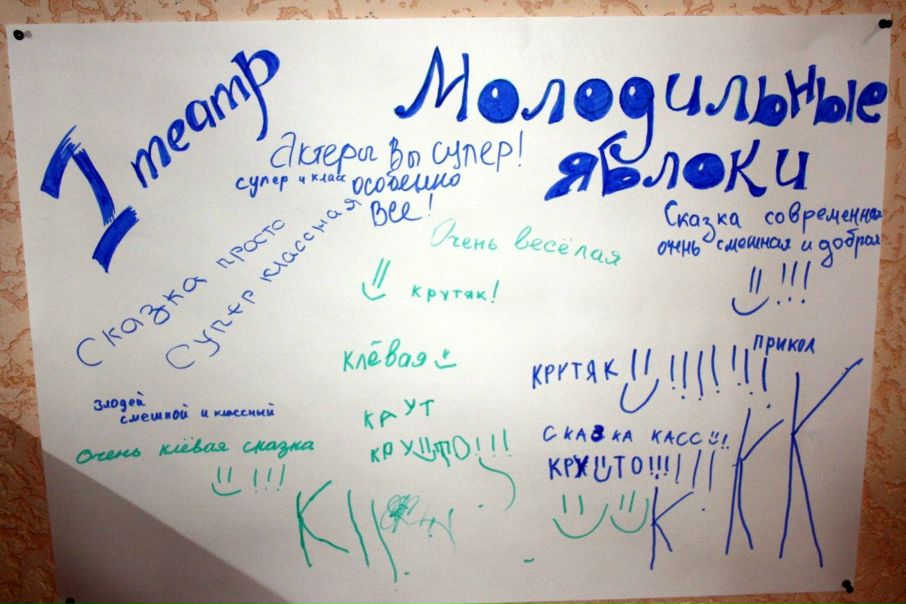 1 театр
Молодильные
яблоки
Актеры Вы супер!
супер и класс особенно
Все!
Сказка просто
Супер классная
Очень весёлая
крутяк!
Сказка современная
очнь смешная и добрая
!!!
Клёвая
прикол
КРУТЯК !!!!!!!
Злодей
смешной и классный
крут
Очень клёвая сказка
!!!
СКАЗКА КАСС !!
К К К
К